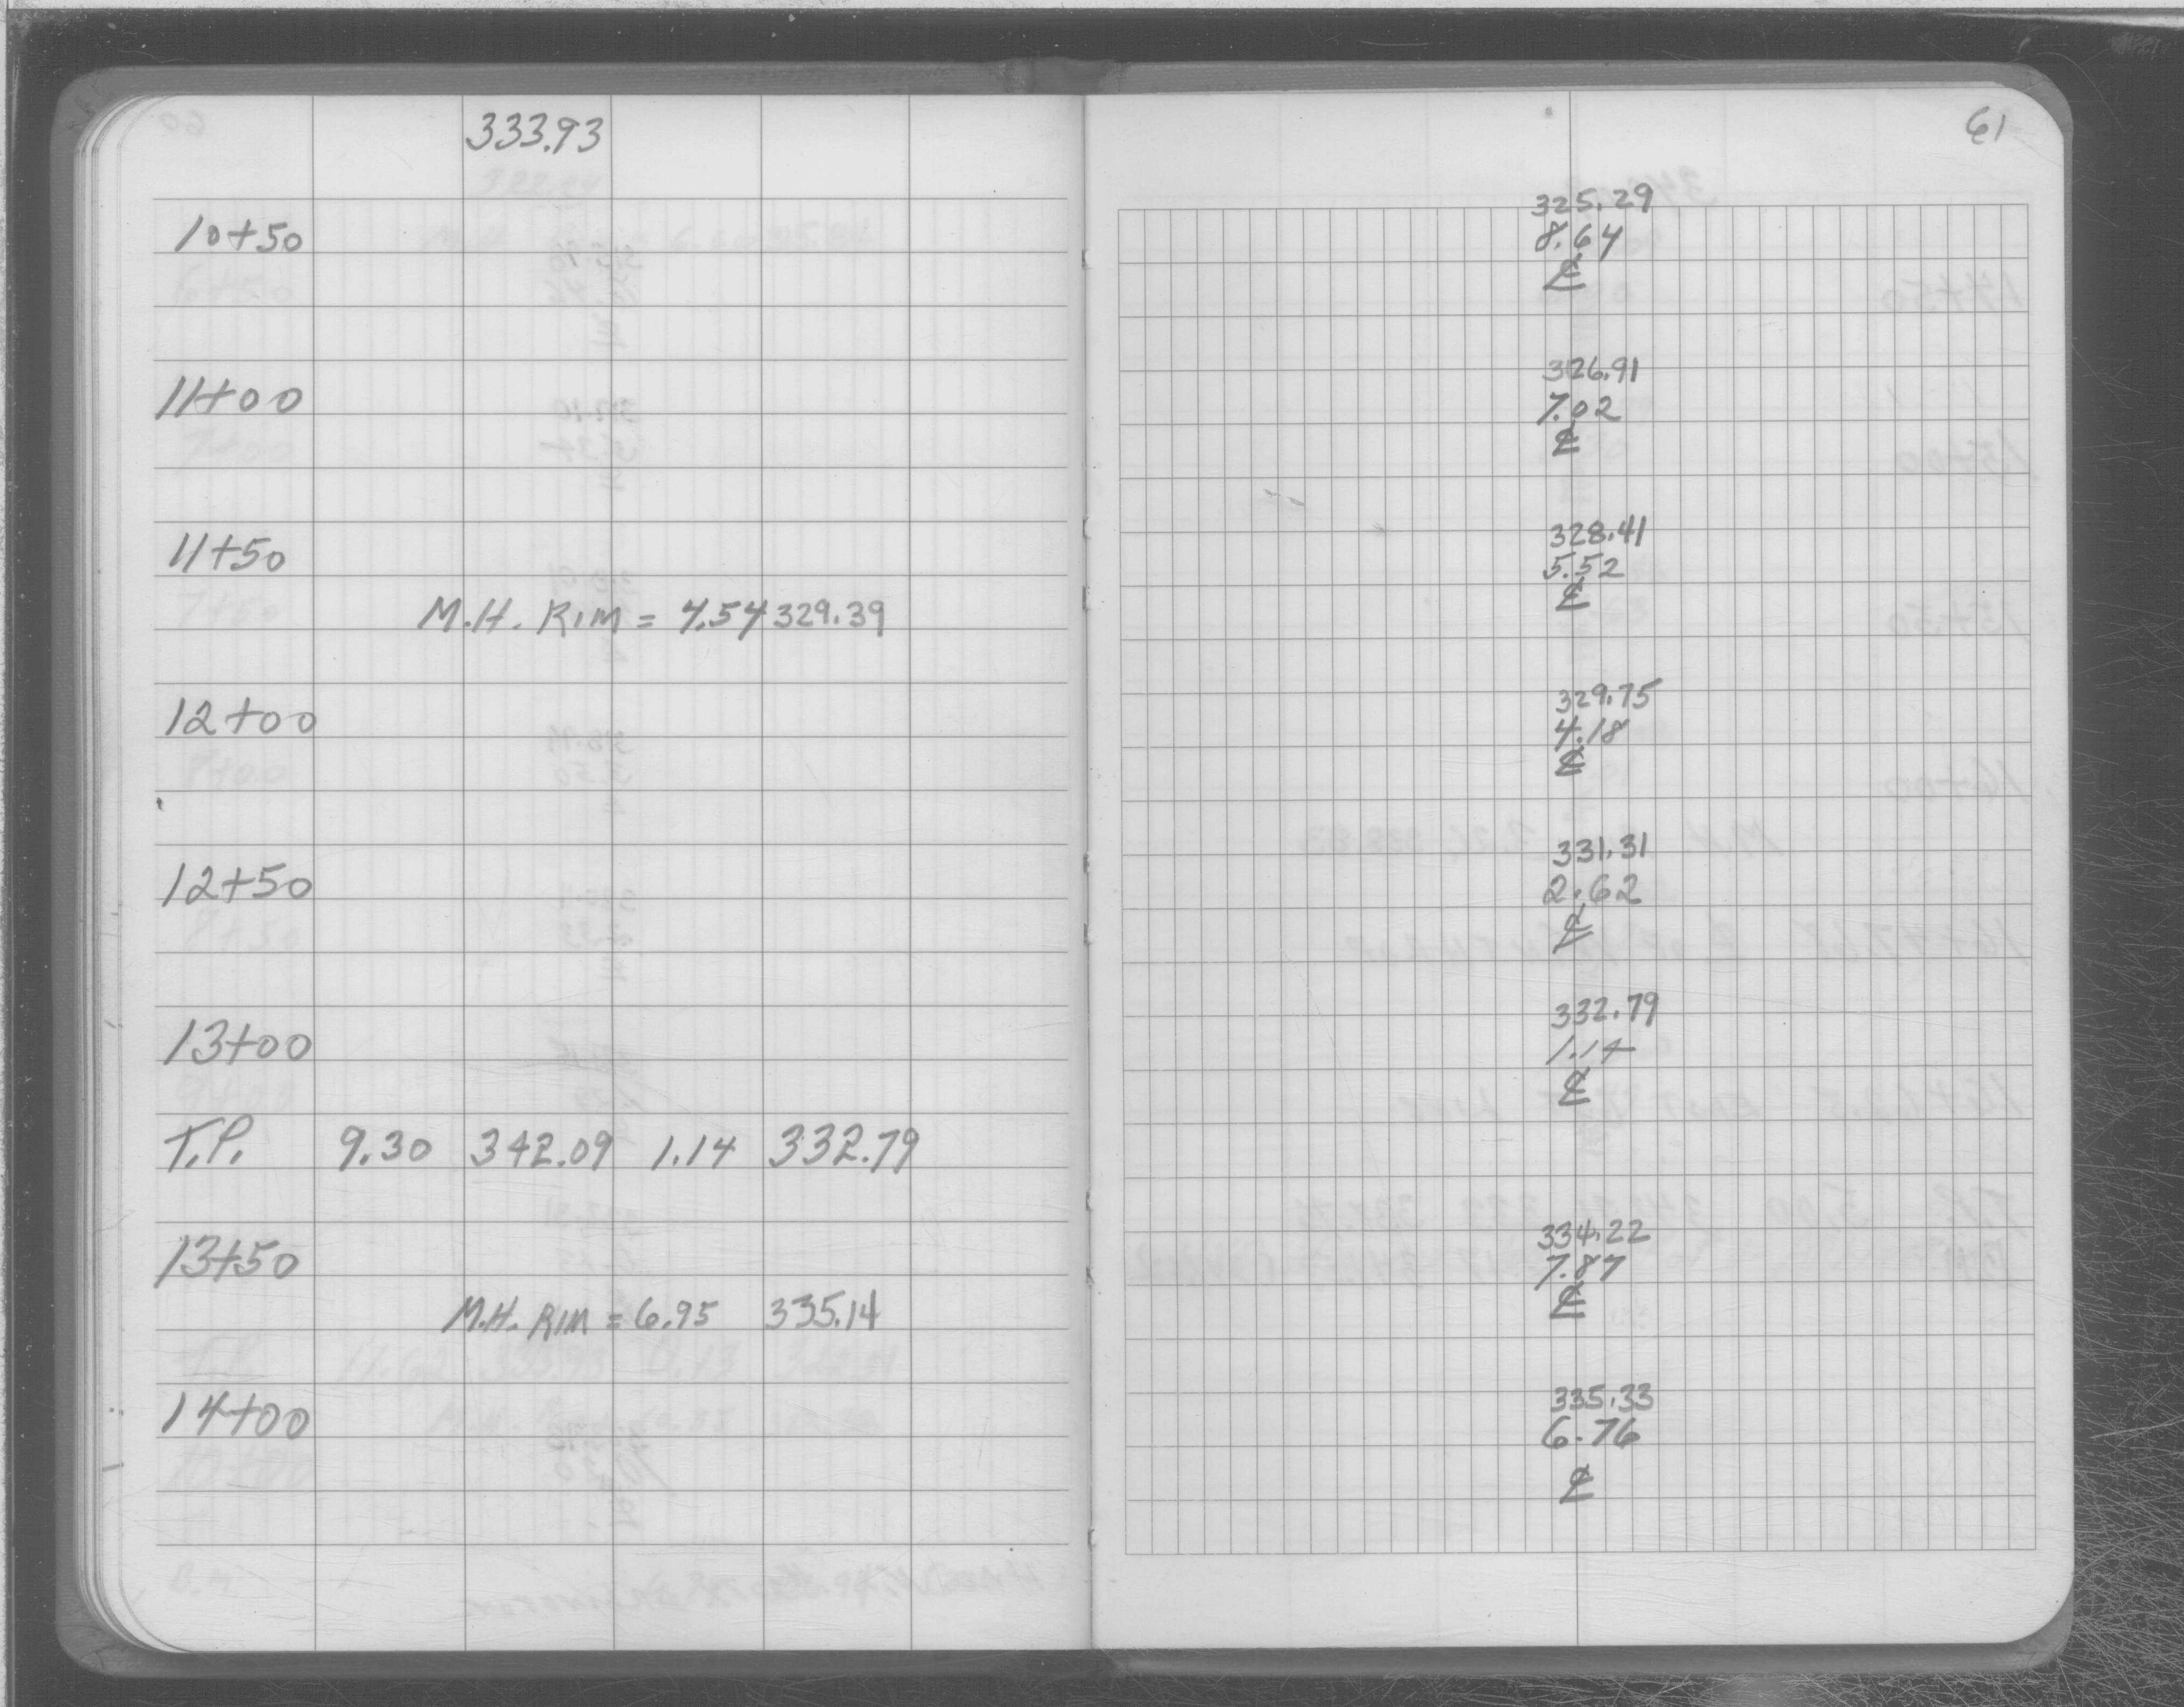 333.93
10+50
11+00
11+50
M.H. RIM = 4.54 329.39
12+00
12+50
13+00
T.P. 9.30 342.09 1.14 332.79
13+50
M.H. RIM = 6.95 335.14
14+00
61
325.29
8.64
℄
326.91
7.02
℄
328.41
5.52
℄
329.75
4.18
℄
331.31
2.62
℄
332.79
1.14
℄
334.22
7.87
℄
335.33
6.76
℄